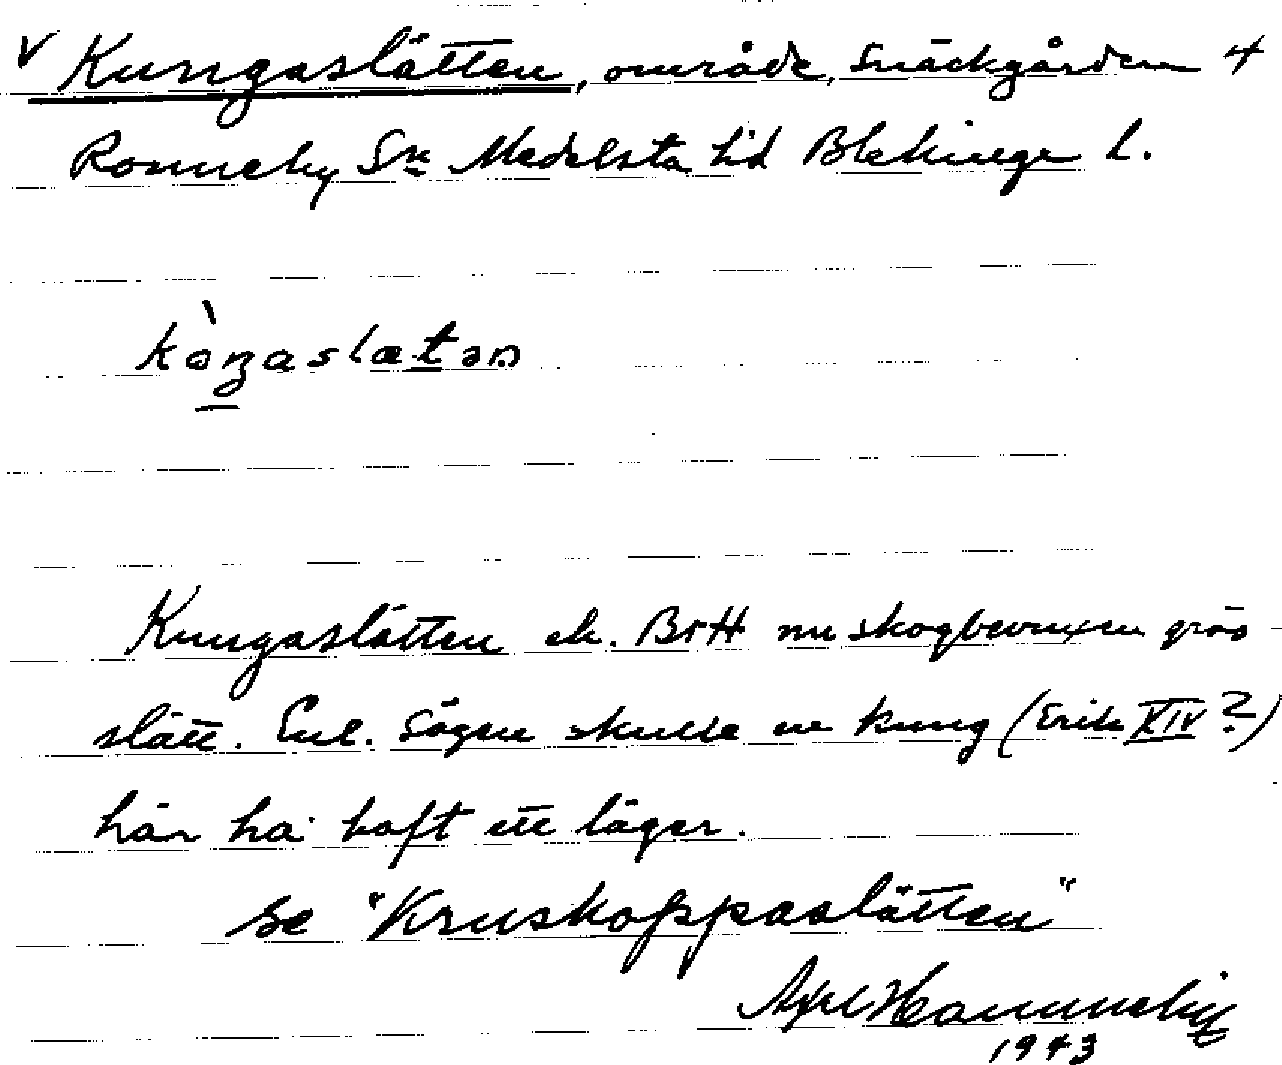 V Kungaslätten, område, Snäckgården 4
Ronneby Sn Medelsta hd Blekinge l.
kòŋaslætən
Kungaslätten ek. BrH nu skogbevuxen gräs
slätt. Enl. Sägen skulle en kung (Erik XIV?)
här ha haft ett läger.
se "Kruskoppaslätten"
Axel Hammneby
1943